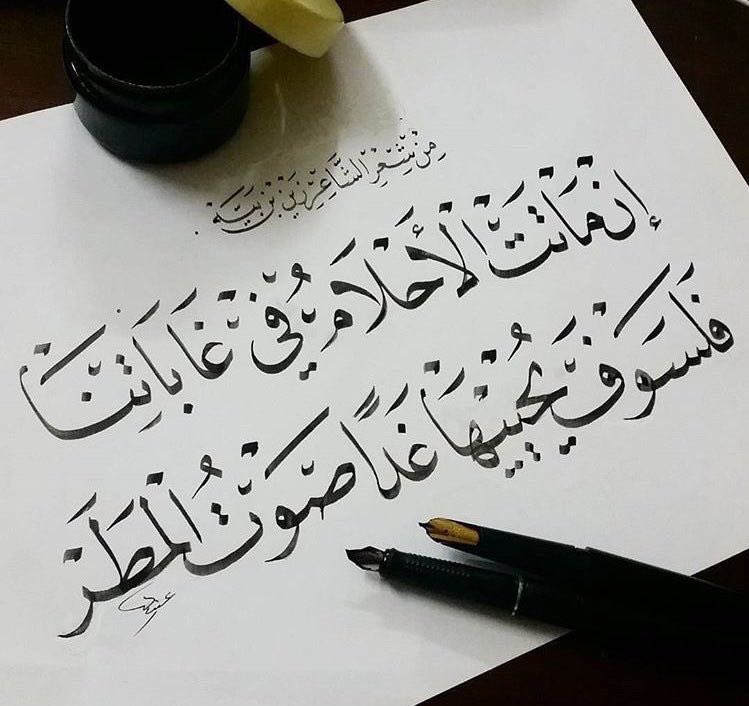 مِنْ شِعْرِ الشَّاعِرِ زين بن بيّه
إنْ مَاتَتِ الأَحْلَامُ فِي غَابَاتِنَا
فَلَسَوْفَ يُحْيِيْهَا غَدًا صَوْتُ الْمَطَرْ